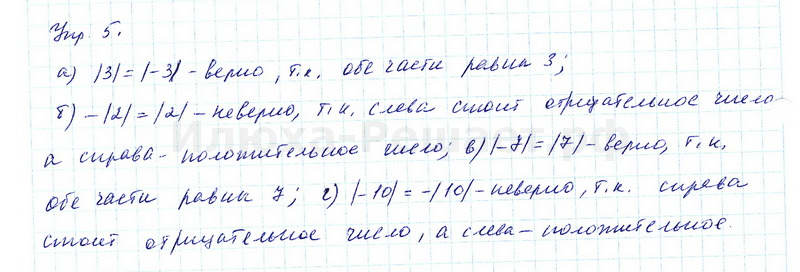 Упр. 5.
а) |3| = |-3| - верно, т.к. обе части равны 3;
б) -|2| = |2| - неверно, т.к. слева стоит отрицательное число
а справа - положительное число; в) |-7| = |7| - верно, т.к.
обе части равны 7; г) |-10| = -|10| - неверно, т.к. справа
стоит отрицательное число, а слева - положительное.
Илюха-Решает.рф